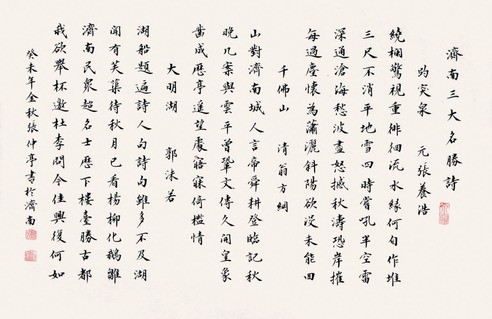 濟南三大名勝詩
趵突泉 元 張養浩
繞欄驚視重徘徊流水緣何自作堆
三尺不消平地雪四時嘗吼半空雷
深通滄海愁波盡怒撼秋濤恐岸摧
每過塵懷為蕭灑斜陽欲沒未能回
千佛山 清 翁方綱
山對濟南城人言帝舜耕登臨記秋
晚几案與雲平曾鞏文傳久開皇象
鑿成歷亭遥望處寤寐倚檻情
大明湖 郭沫若
湖船題遍詩人句詩句雖多不及湖
聞有芙蕖待秋月已看楊柳化鵝雛
濟南民衆超名士歷下樓臺勝古都
我欲舉杯邀杜李問今佳興復何如
癸未年金秋張仲亭書於濟南